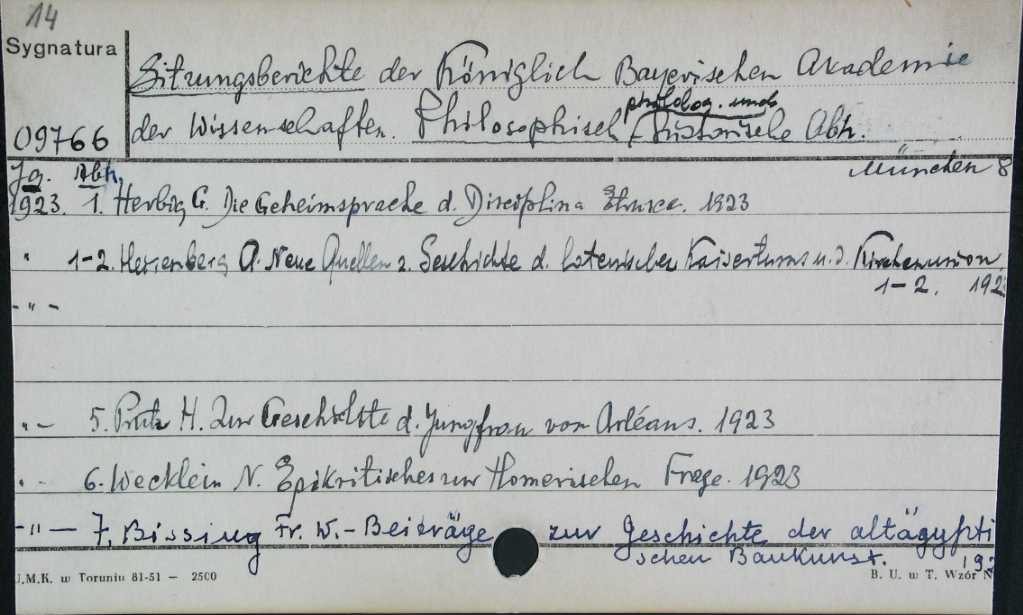 14
Sygnatura
Sitzungsberichte der Königlich Bayerischen Akademie
philolog. und
09766 der Wissenschaften. Philosophisch - historische Abh.
Jg. Abh. München 8
1923. 1. Herbig G. Die Geheimsprache d. Disciplina Etrusca. 1923
" 1-2. Heisenberg A. Neue Quellen z. Geschichte d. lateinischen Kaisertums u. d. Kirchenunion.
1-2. 192
- " -
" - 5. Prutz H. Zur Geschichte d. Jungfrau von Orléans. 1923
" - 6. Wecklein N. Epikritisches zur Homerischen Frage. 1923
- " - 7. Bissing Fr. W. - Beiträge zur Geschichte der altägypti
schen Baukunst. 192
U.M.K. w Toruniu 81-51 — 2500 B. U. w T. Wzór N